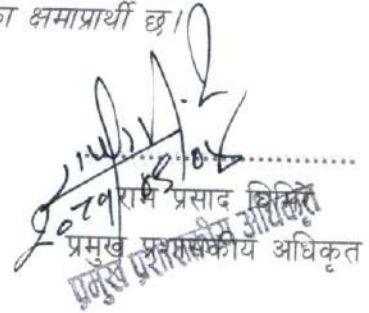 क्षमाप्रार्थी छ।
राम प्रसाद घिमिरे
प्रमुख प्रशासकीय अधिकृत
प्रमुख प्रशासकीय अधिकृत